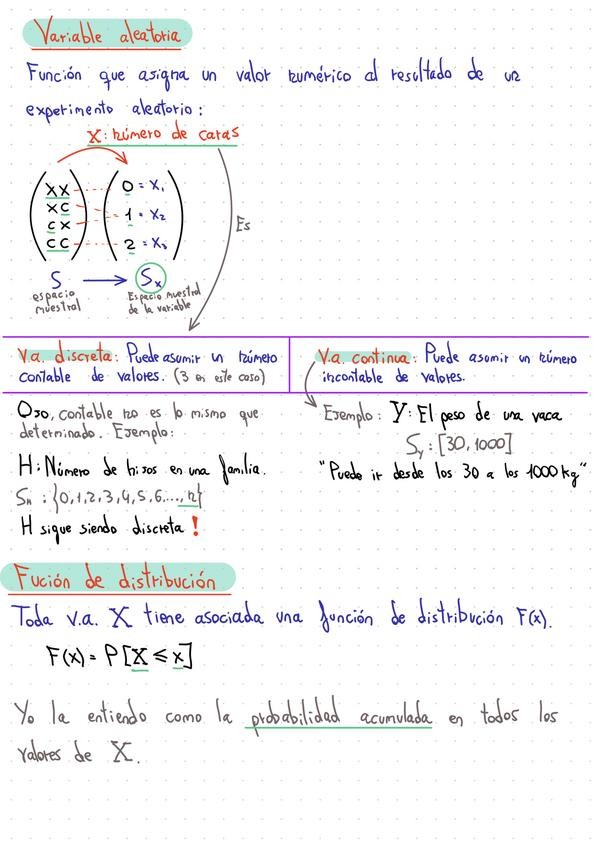 Variable aleatoria
Función que asigna un valor numérico al resultado de un
experimento aleatorio:
X: número de caras
XX
XC
CX
CC
0 = X₁
1 = X₂
2 = X₃
Es
S → Sx
espacio
muestral
Espacio muestral
de la variable
V.a. discreta: Puede asumir un número
contable de valores. (3 en este caso)
V.a. continua: Puede asumir un número
incontable de valores.
Ojo, contable no es lo mismo que
determinado. Ejemplo:
H: Número de hijos en una familia.
Sн : {0,1,2,3,4,5,6...., n}
H sigue siendo discreta !
Ejemplo: Y: El peso de una vaca
Sy : [30, 1000]
"Puede ir desde los 30 a los 1000 kg"
Fución de distribución
Toda v.a. X tiene asociada una función de distribución F(x).
F(x) = P[X ≤ x]
Yo la entiendo como la probabilidad acumulada en todos los
valores de X.